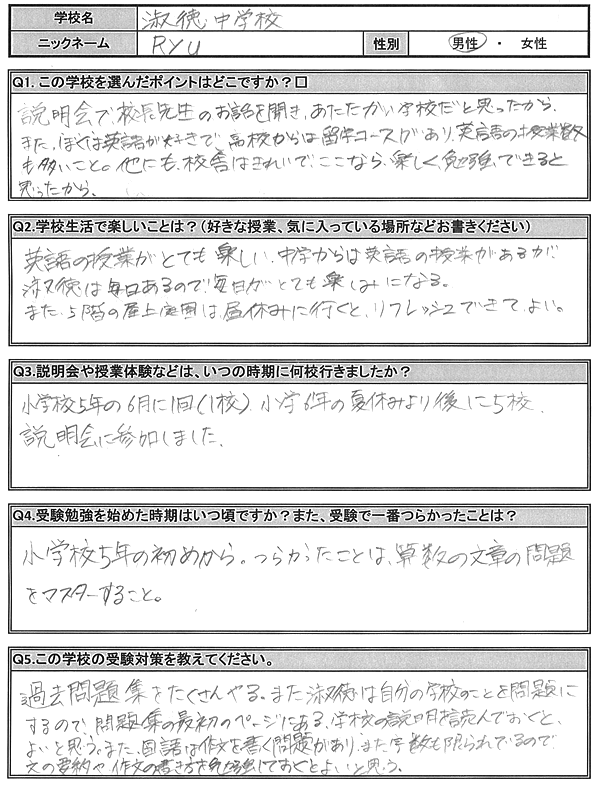 学校名 淑徳中学校
ニックネーム Ryu 性別 男性 ・ 女性
Q1. この学校を選んだポイントはどこですか？□
説明会で校長先生のお話を聞き、あたたかい学校だと思ったから。
また、ぼくは英語が好きで、高校からは留学コースがあり、英語の授業数
も多いこと。他にも、校舎はきれいで、ここなら、楽しく勉強できると
思ったから。
Q2.学校生活で楽しいことは？（好きな授業、気に入っている場所などお書きください）
英語の授業がとても楽しい。中学からは英語の授業があるが、
淑徳は毎日あるので、毎日がとても楽しみになる。
また、5階の屋上庭園は、昼休みに行くと、リフレッシュできて、よい。
Q3.説明会や授業体験などは、いつの時期に何校行きましたか？
小学校5年の6月に1回(1校)、小学6年の夏休みより後に5校、
説明会に参加しました。
Q4.受験勉強を始めた時期はいつ頃ですか？また、受験で一番つらかったことは？
小学校5年の初めから。つらかったことは、算数の文章の問題
をマスターすること。
Q5.この学校の受験対策を教えてください。
過去問題集をたくさんやる。また淑徳は自分の学校のことを問題に
するので、問題集の最初のページにある、学校の説明読んでおくと、
よいと思う。また、国語は作文を書く問題があり、また字数も限られているので
文の要約や、作文の書き方を勉強しておくとよいと思う。